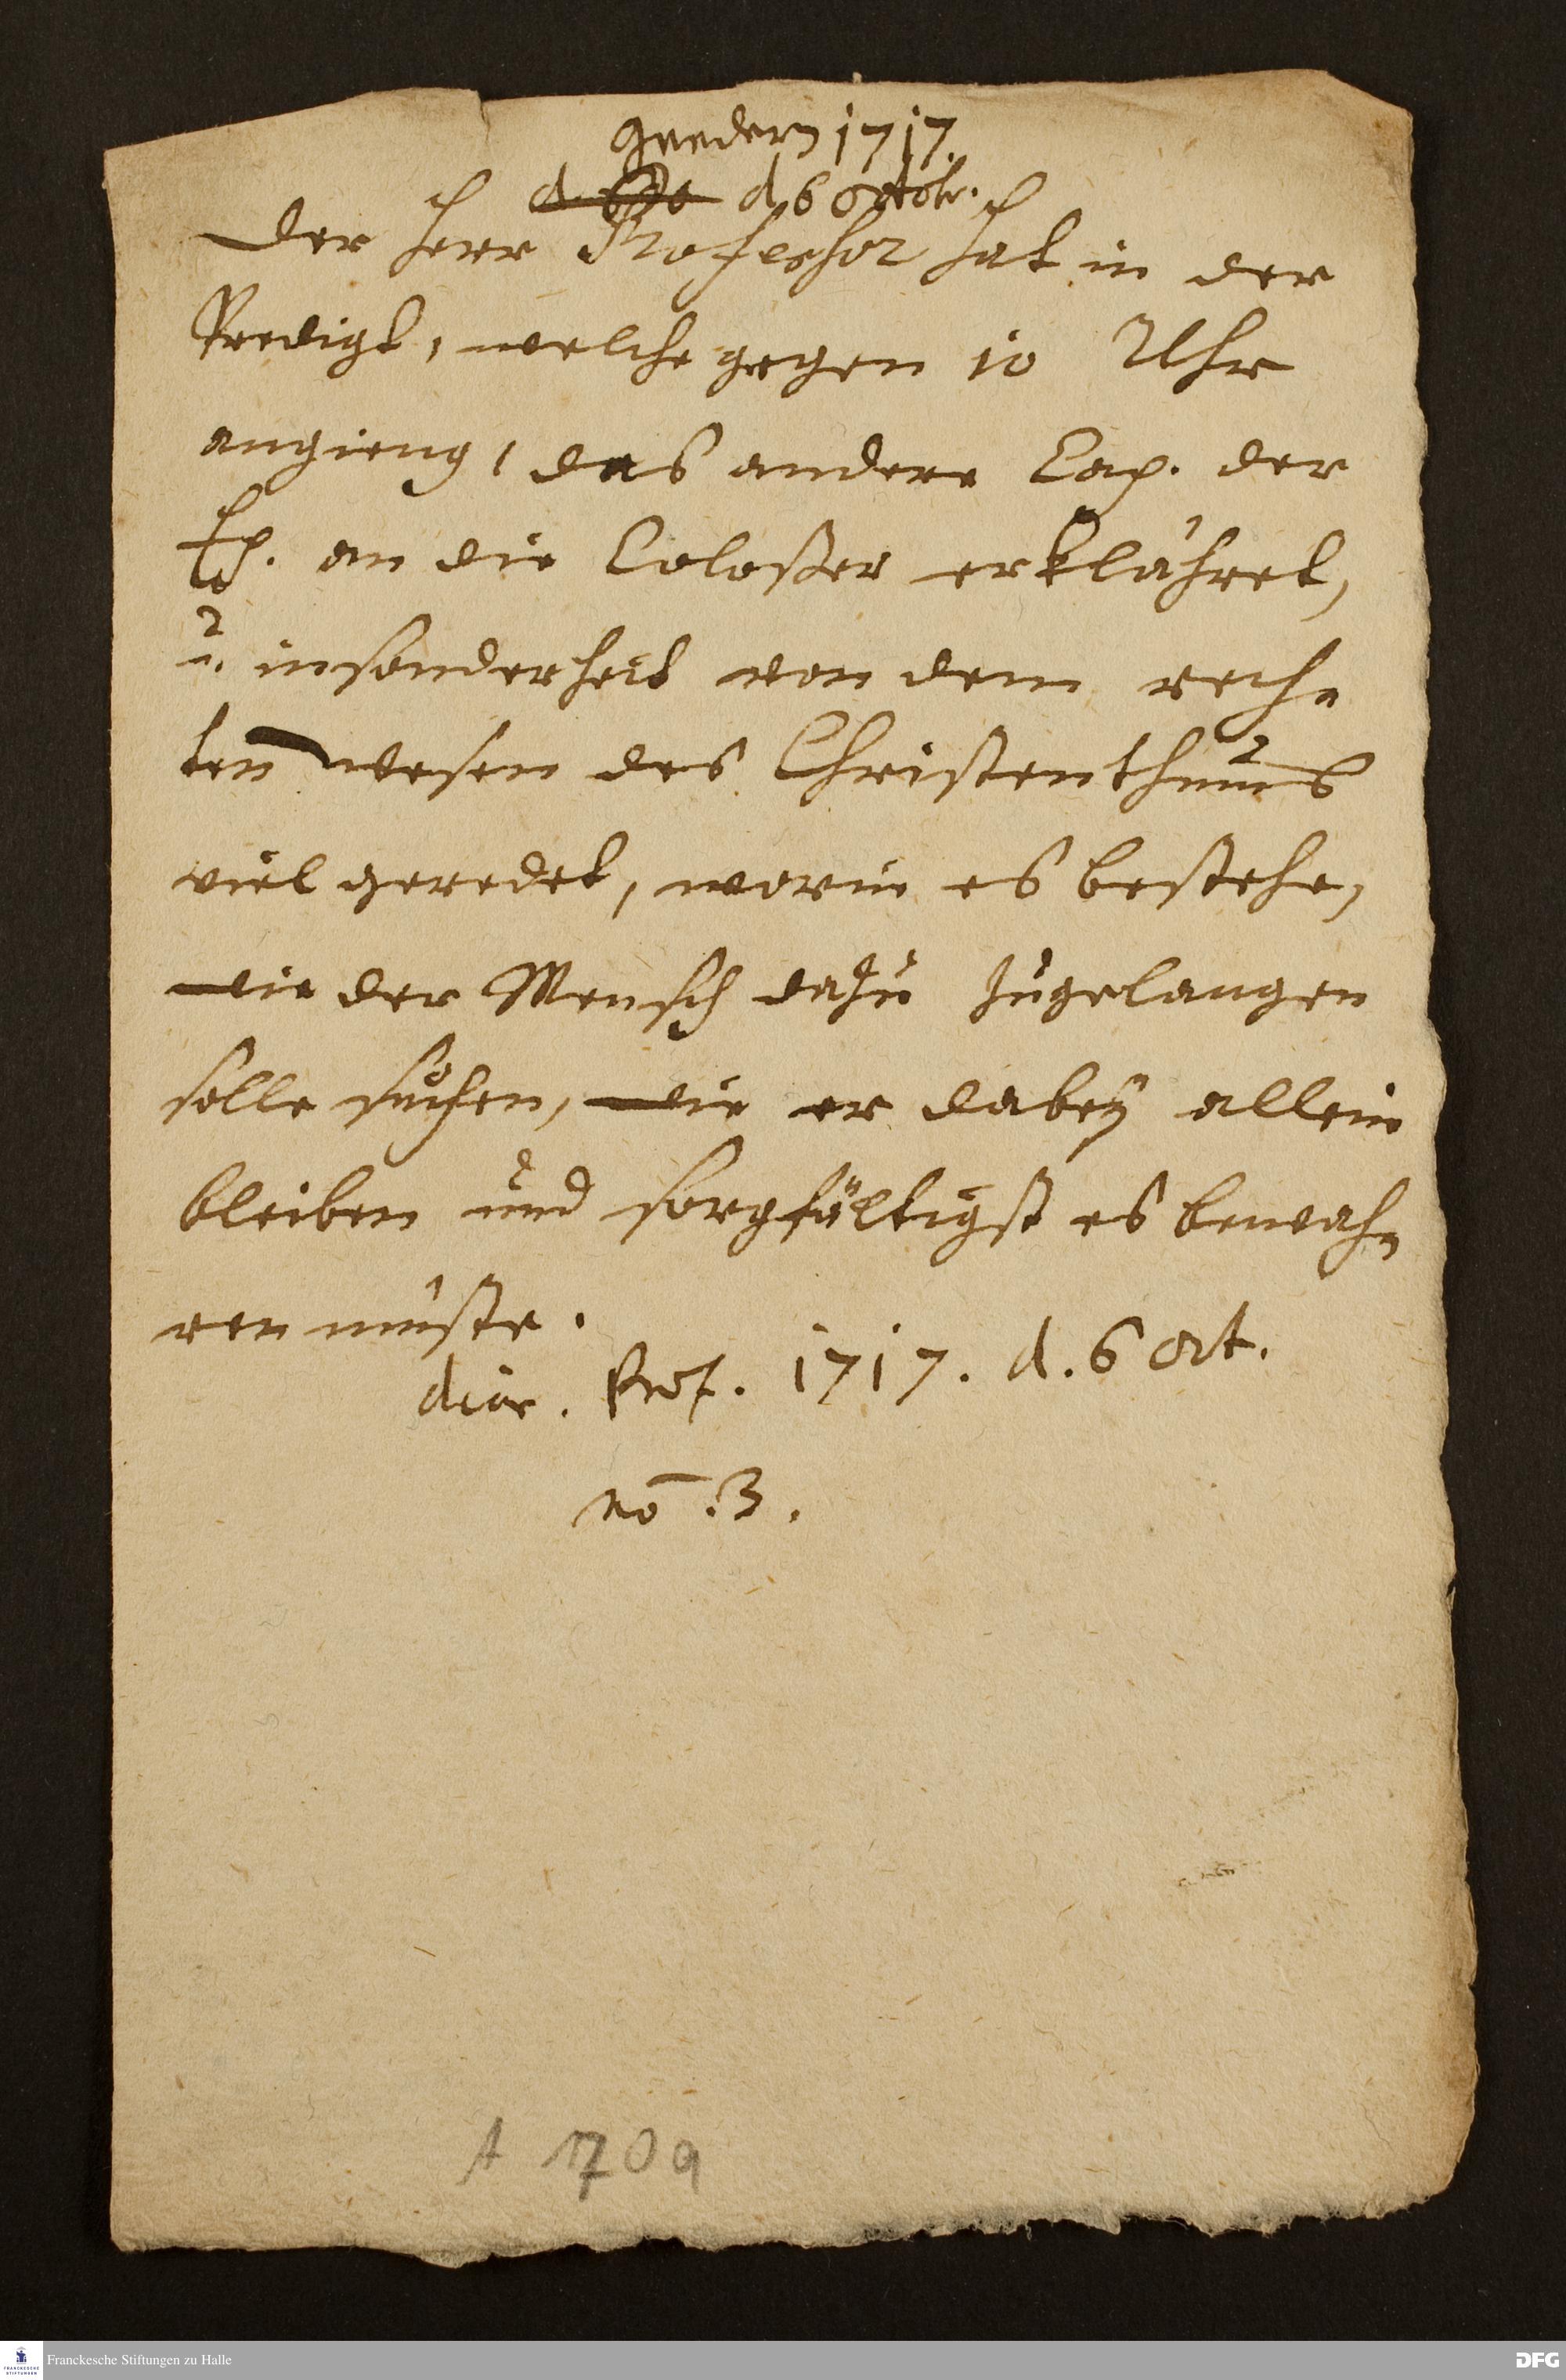 Geedern 1717.
d. 6 octobr.
Der Herr Professor hat in der
Predigt, welche gegen 10 Uhr
angieng, das andere Cap. der
Ep. an die Coloßer erklähret,
u. insonderheit von dem rech-
ten wesen des Christenthums
viel geredet, worin es bestehe,
wie der Mensch dazu zugelangen
solle suchen, wie er dabey allein
bleiben und sorgfältigst es bewah-
ren müste.
diar. Prof. 1717. d. 6 Oct.
no. 3.
A 170a
Franckesche Stiftungen zu Halle
FRANCKESCHE
STIFTUNGEN
DFG